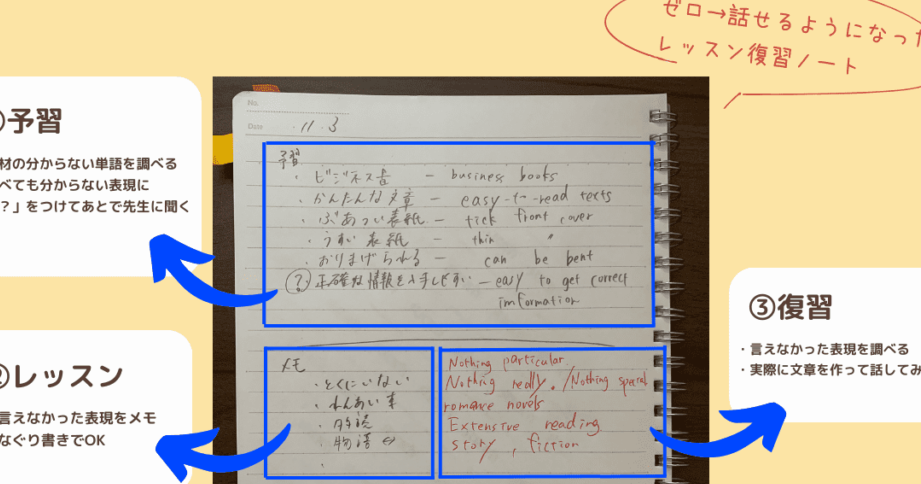 ゼロ→話せるようになった
レッスン復習ノート
①予習
材の分からない単語を調べる
べても分からない表現に
?」をつけてあとで先生に聞く
②レッスン
言えなかった表現をメモ
なぐり書きでOK
③復習
・言えなかった表現を調べる
・実際に文章を作って話してみ
No.
Date ・11・3
予習
・ビジネス書 — business books
・かんたんな文章 — easy-to-read texts
・ぶあつい表紙 — tick front cover
・うすい表紙 — thin 〃
・おりまげられる — can be bent
? 正確な情報を入手しやすい — easy to get correct
information
メモ
・とくにいない
・れんあい
・多読
・物語
Nothing particular
Nothing really. / Nothing special
romance novels
Extensive reading
story, fiction